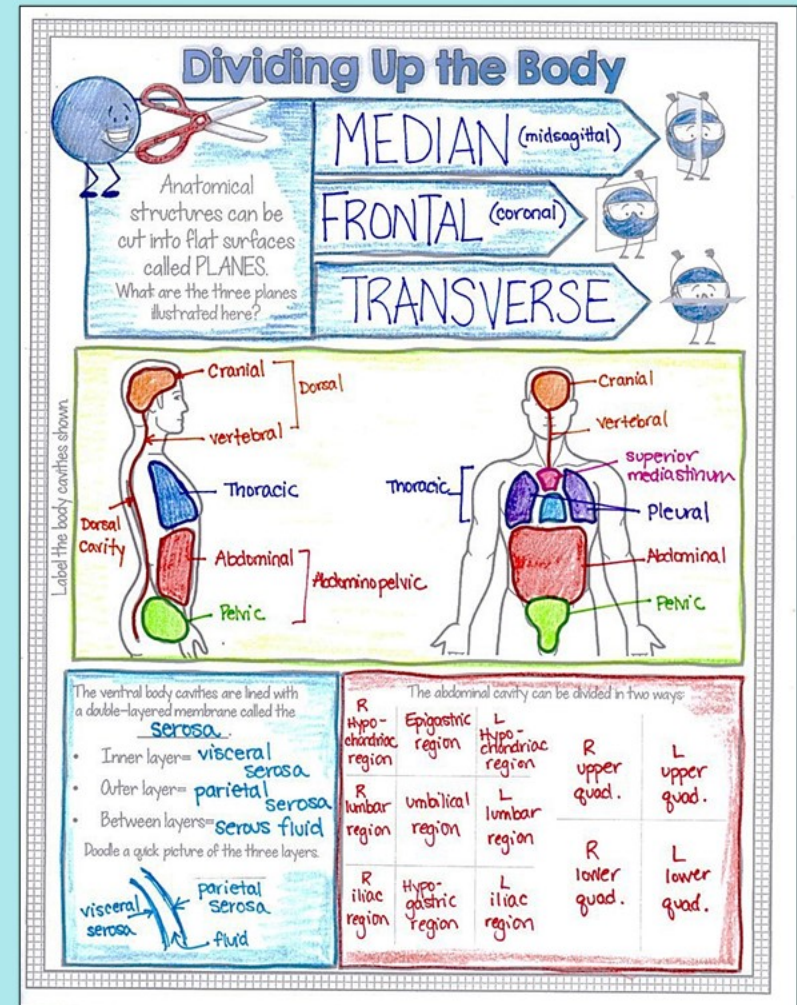 Dividing Up the Body
Anatomical
structures can be
cut into flat surfaces
called PLANES.
What are the three planes
illustrated here?
MEDIAN (midsagittal)
FRONTAL (coronal)
TRANSVERSE
Label the body cavities shown.
Cranial
Dorsal
vertebral
Thoracic
Dorsal
cavity
Abdominal
Abdominopelvic
Pelvic
Cranial
vertebral
superior
mediastinum
Thoracic
Pleural
Abdominal
Pelvic
The ventral body cavities are lined with
a double-layered membrane called the
serosa.
• Inner layer= visceral
serosa
• Outer layer= parietal
serosa
• Between layers= serous fluid
Doodle a quick picture of the three layers.
visceral
serosa
parietal
serosa
fluid
The abdominal cavity can be divided in two ways:
R
Hypo-
chondriac
region
Epigastric
region
L
Hypo-
chondriac
region
R
lumbar
region
umbilical
region
L
lumbar
region
R
iliac
region
Hypo-
gastric
region
L
iliac
region
R
upper
quad.
L
upper
quad.
R
lower
quad.
L
lower
quad.